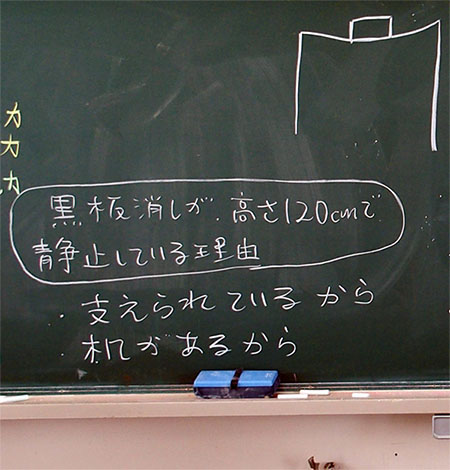 力
力
力
黒板消しが、高さ120cmで
静止している理由
・支えられているから
・机があるから